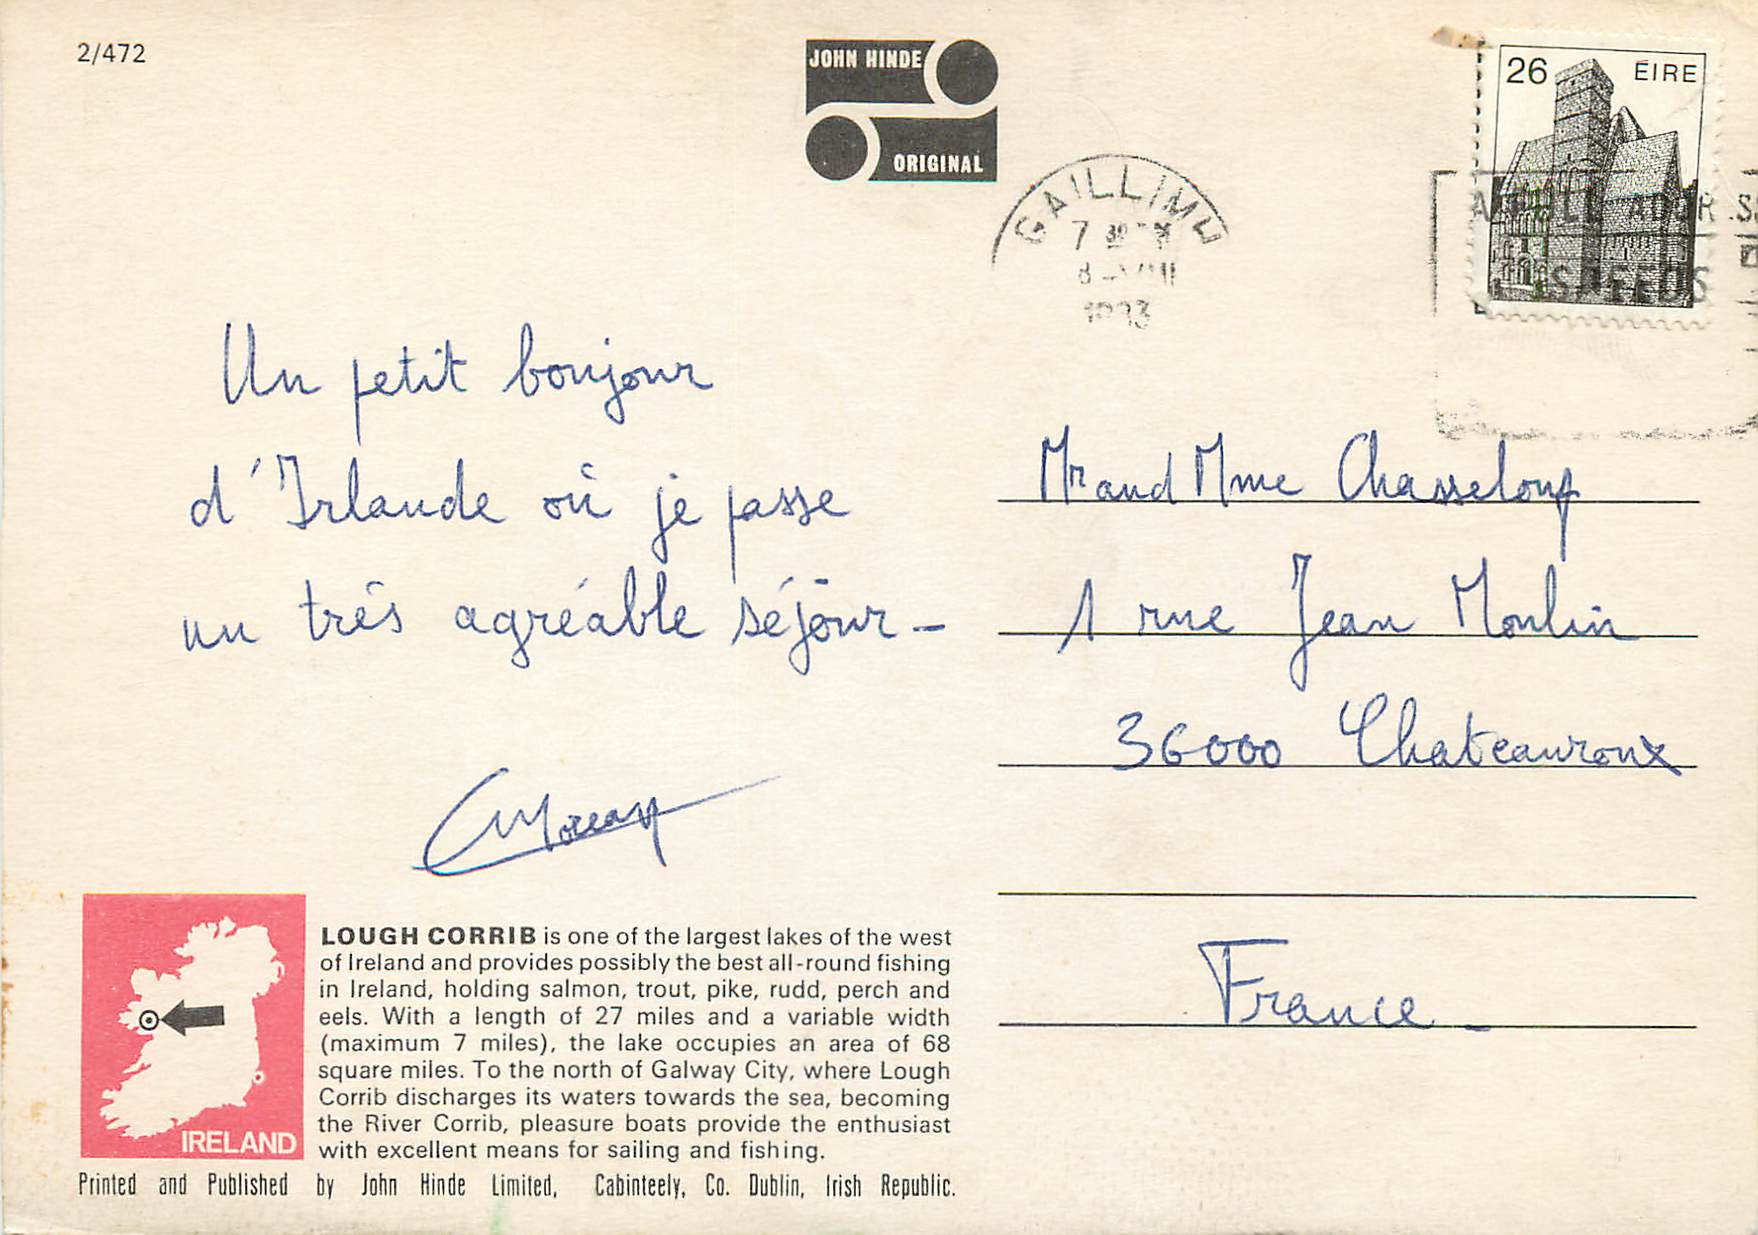 2/472
JOHN HINDE
ORIGINAL
26 ÉIRE
GAILLIMH
7 30
8 VIII
1983
SPEEDS
Un petit bonjour
d'Irlande où je passe
un très agréable séjour -
Moreau
Mr and Mme Chasseloup
1 rue Jean Moulin
36000 Chateauroux
France -
LOUGH CORRIB is one of the largest lakes of the west
of Ireland and provides possibly the best all-round fishing
in Ireland, holding salmon, trout, pike, rudd, perch and
eels. With a length of 27 miles and a variable width
(maximum 7 miles), the lake occupies an area of 68
square miles. To the north of Galway City, where Lough
Corrib discharges its waters towards the sea, becoming
the River Corrib, pleasure boats provide the enthusiast
with excellent means for sailing and fishing.
IRELAND
Printed and Published by John Hinde Limited, Cabinteely, Co. Dublin, Irish Republic.